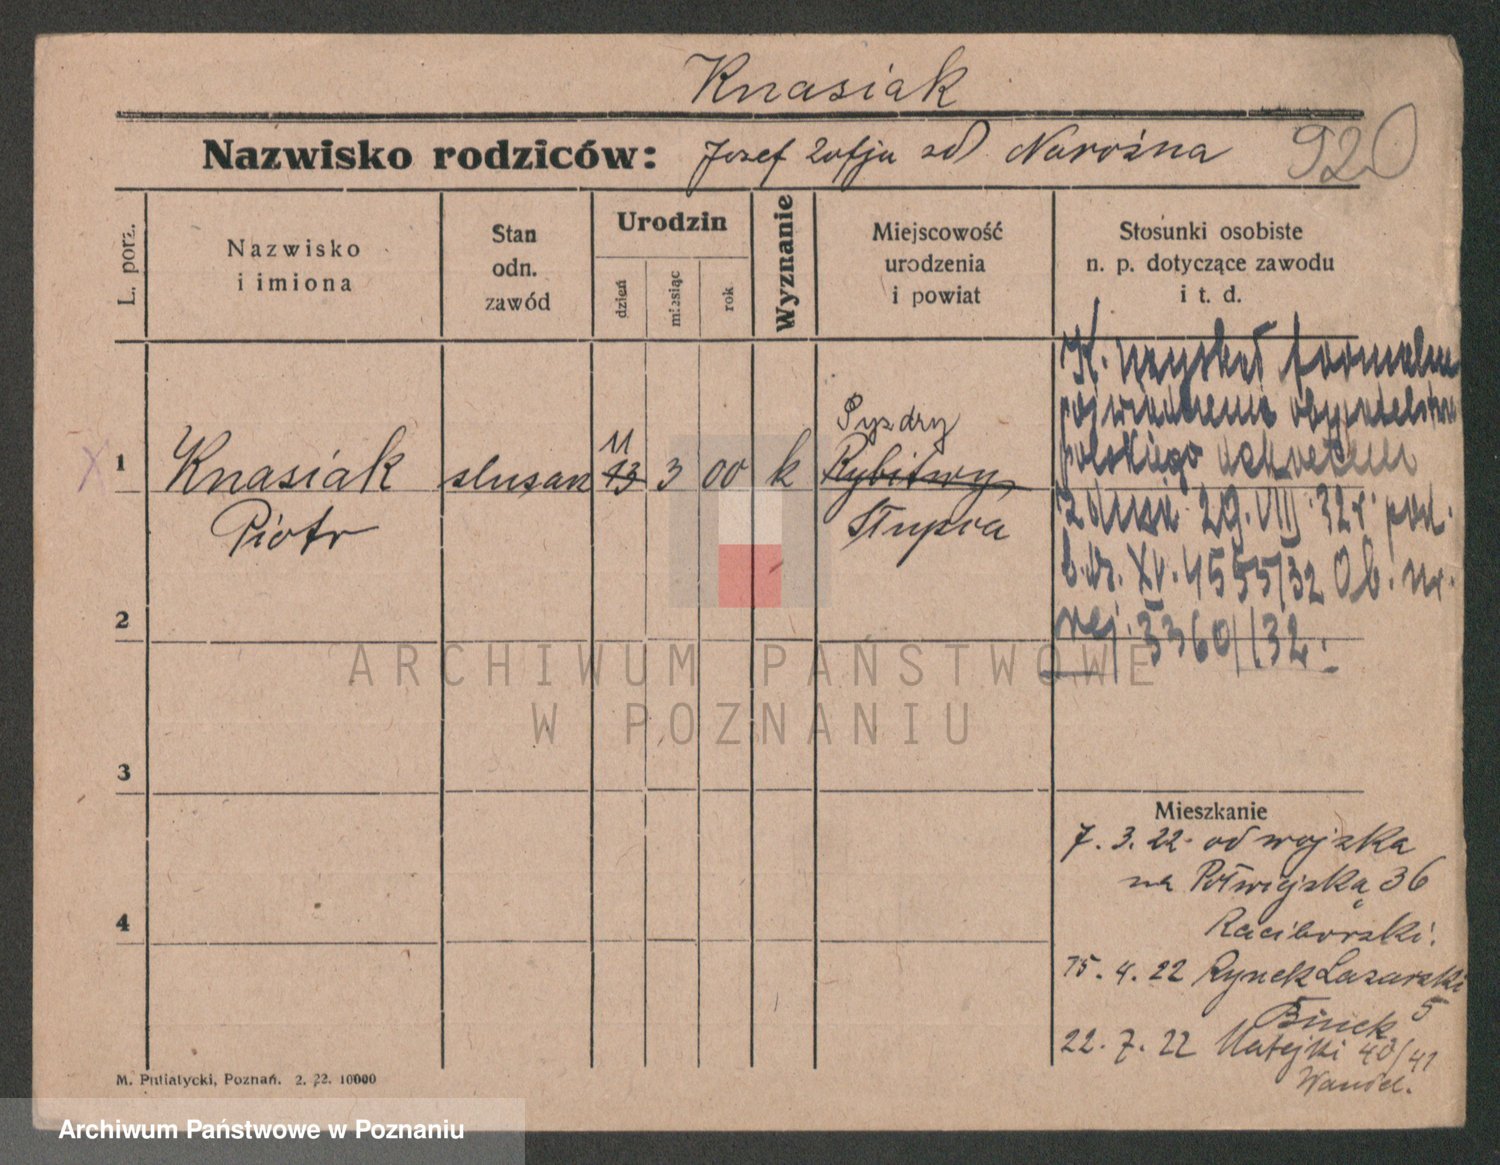 Knasiak
Nazwisko rodziców: Josef Zofja zd Narożna
920
L. porz.
Nazwisko
i imiona
Stan
odn.
zawód
Urodzin
dzień
miesiąc
rok
Wyznanie
Miejscowość
urodzenia
i powiat
Stosunki osobiste
n. p. dotyczące zawodu
i t. d.
1
Knasiak
Piotr
slusarz
11
13
3
00
k
Pyzdry
Rybitwy
Słupca
K. uzyskał formalne
poświadczenie obywatelstwa
polskiego
z dnia 29.VIII.32r. pod.
l.dz. XV. 4555/32 Ob. nr.
rej. 3360/32.
2
3
4
Mieszkanie
7. 3. 22. od wojska
na Półwiejską 36
Raciborski.
15. 4. 22 Rynek Lazarski
5
22. 7. 22 Matejki 40/41
M. Putiatycki, Poznań. 2. 22. 10000
ARCHIWUM PAŃSTWOWE
W POZNANIU
Archiwum Państwowe w Poznaniu